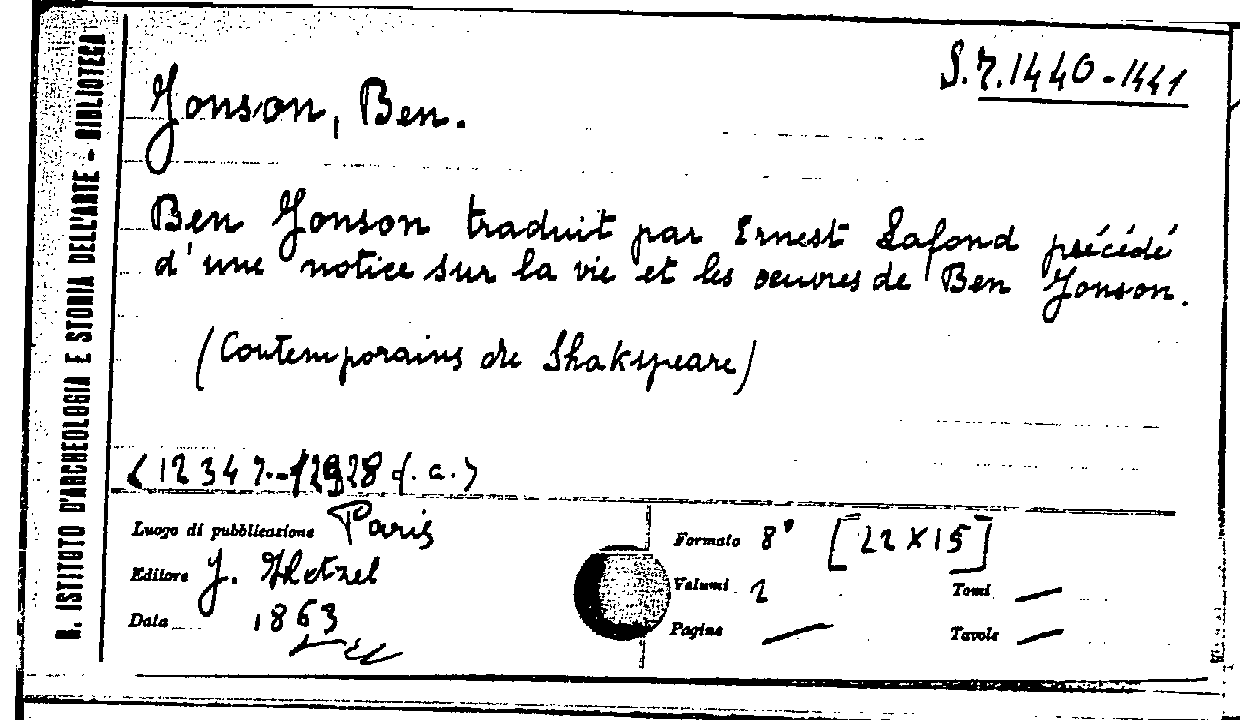 R. ISTITUTO D'ARCHEOLOGIA E STORIA DELL'ARTE - BIBLIOTECA
S.R.1440-1441
Jonson, Ben.
Ben Jonson traduit par Ernest Lafond précédé
d'une notice sur la vie et les oeuvres de Ben Jonson.
(Contemporains de Shakspeare)
Luogo di pubblicazione Paris
Editore J. Hetzel
Data 1863
Formato 8° [22 X 15]
Volumi 2 Tomi —
Pagine — Tavole —